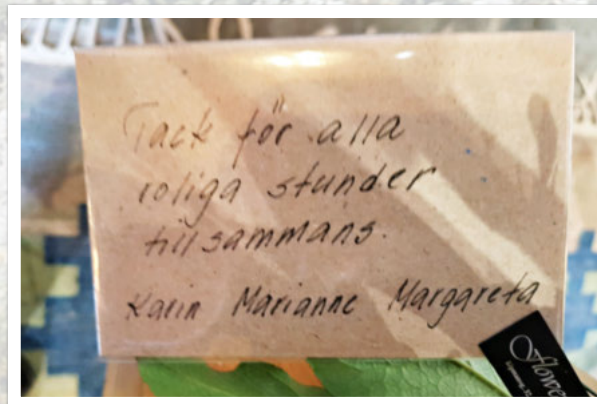 Tack för alla
roliga stunder
tillsammans.
Karin Marianne Margareta